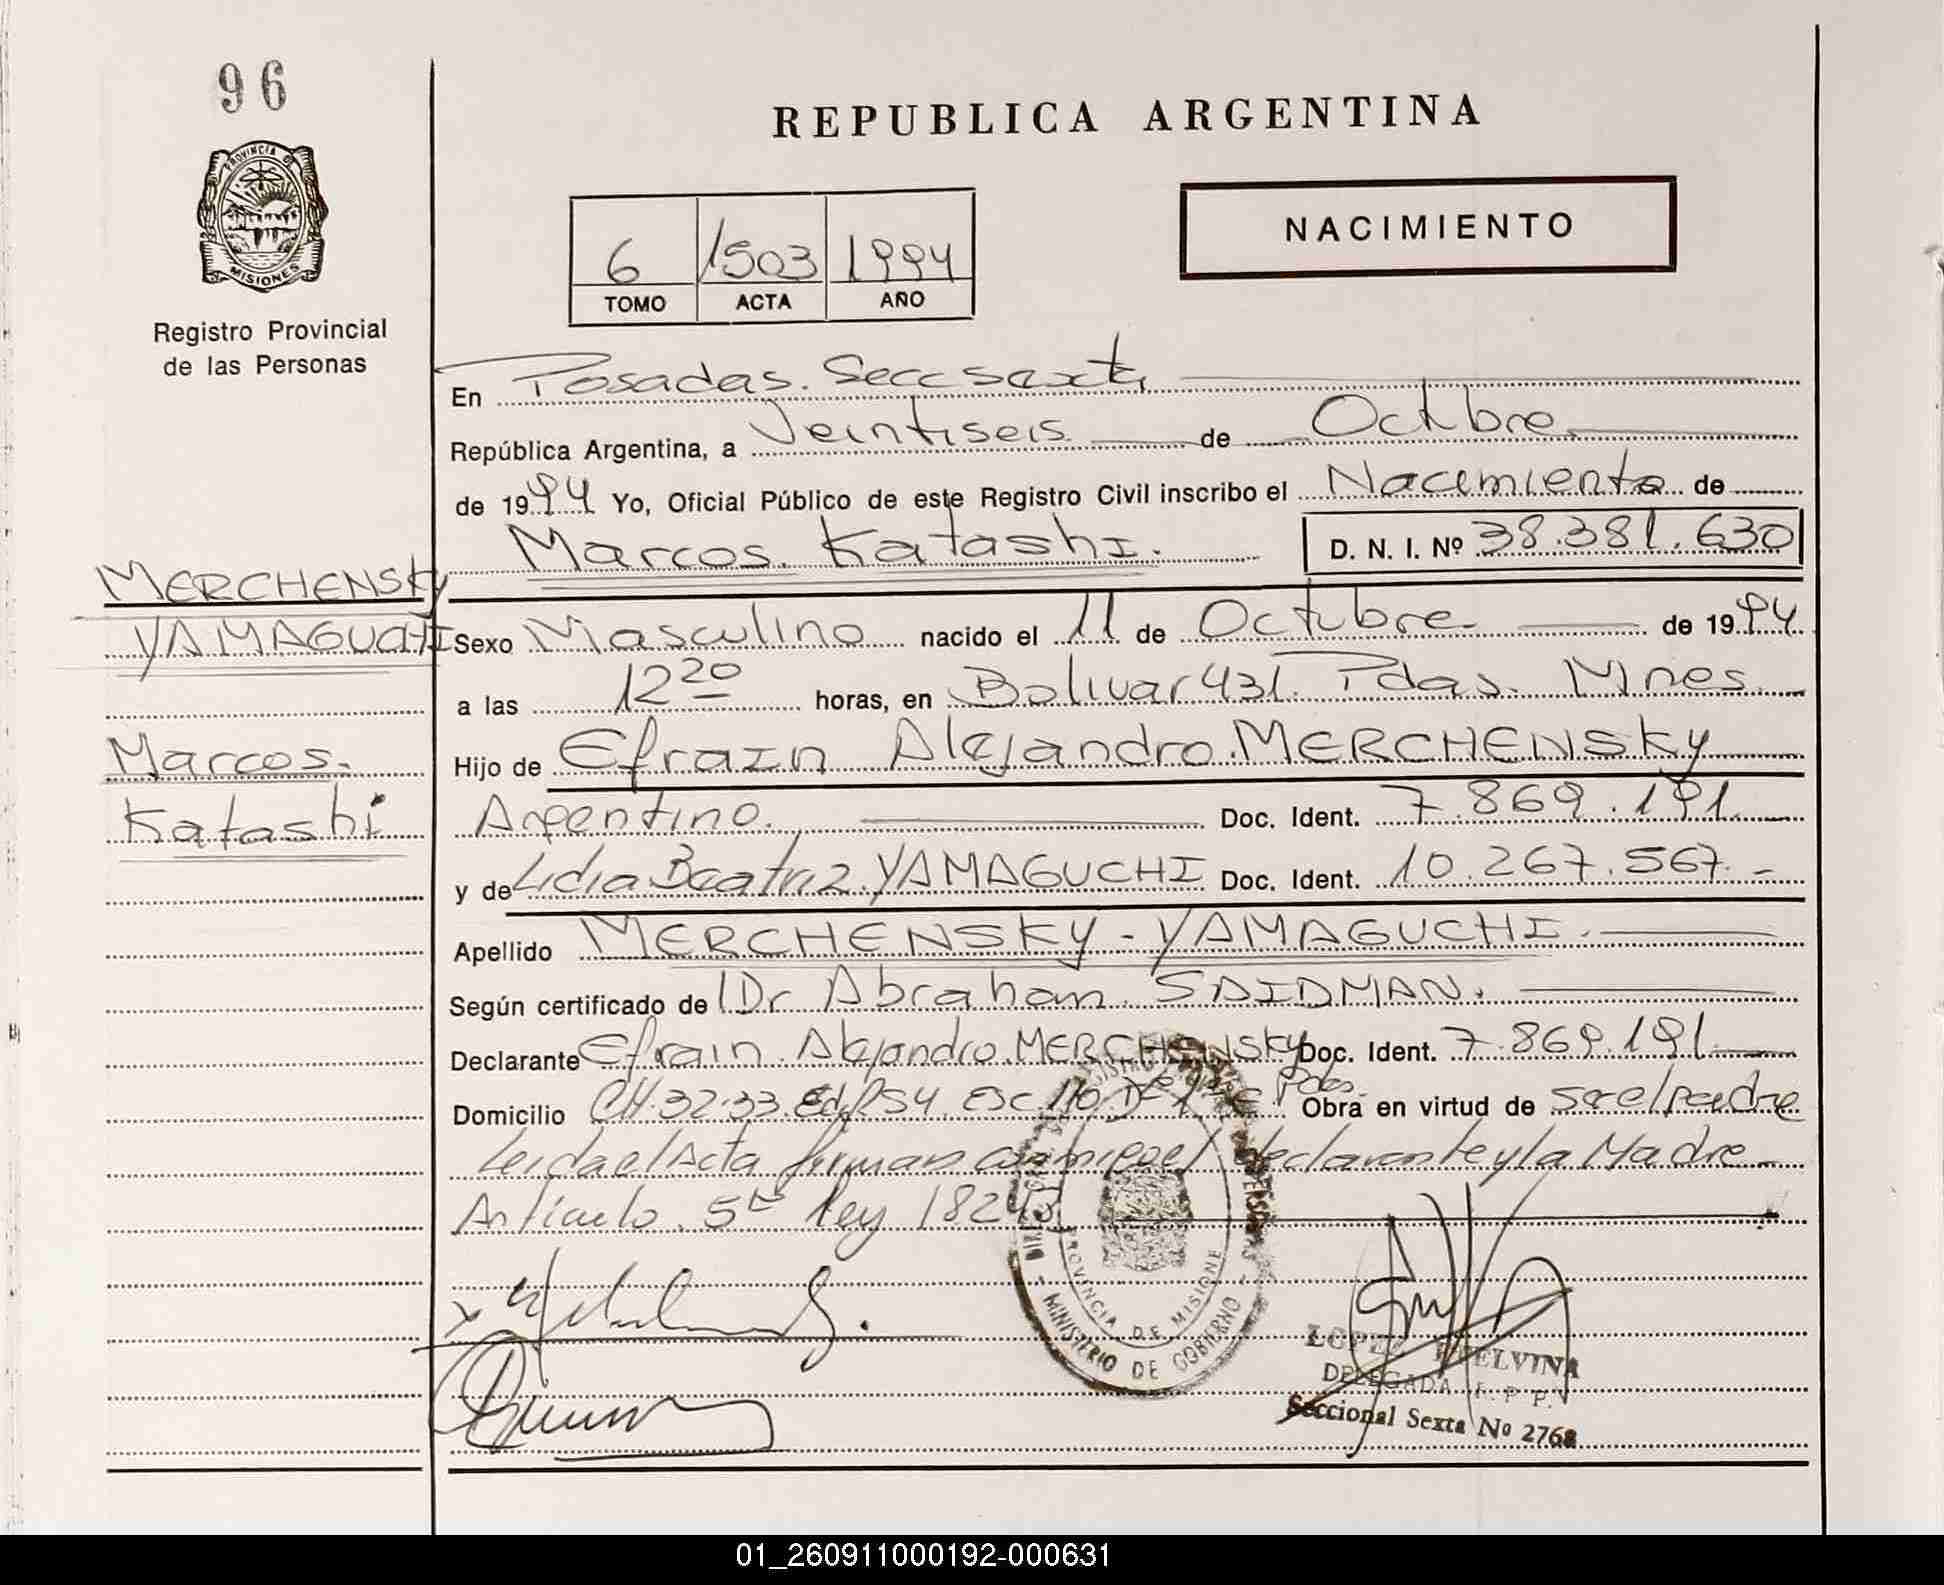 96
PROVINCIA DE
MISIONES
Registro Provincial
de las Personas
REPUBLICA ARGENTINA
NACIMIENTO
6 1503 1994
TOMO ACTA AÑO
En Posadas. Secc sexta
República Argentina, a Veintiseis de Octubre
de 1994 Yo, Oficial Público de este Registro Civil inscribo el Nacimiento de
Marcos Katashi. D. N. I. Nº 38.381.630
MERCHENSKY
YAMAGUCHI
Marcos.
Katashi
Sexo Masculino nacido el 11 de Octubre de 1994
a las 12 20 horas, en Bolivar 431. Pdas. Mnes.
Hijo de Efrain Alejandro MERCHENSKY
Argentino. Doc. Ident. 7.869.191.
y de Lidia Beatriz YAMAGUCHI Doc. Ident. 10.267.567.-
Apellido MERCHENSKY - YAMAGUCHI.
Según certificado de Dr Abraham SAIDMAN.
Declarante Efrain Alejandro MERCHENSKY Doc. Ident. 7.869.191.
Domicilio CH. 32.33 Edif 54 Esc 110 Pdas Obra en virtud de ser el padre
Leida el Acta firman conmigo el declarante y la Madre
Articulo 5to ley 18248
PROVINCIA DE MISIONES
MINISTERIO DE GOBIERNO
LOPEZ ETELVINA
DELEGADA R. P. P.
Seccional Sexta Nº 2768
01_260911000192-000631